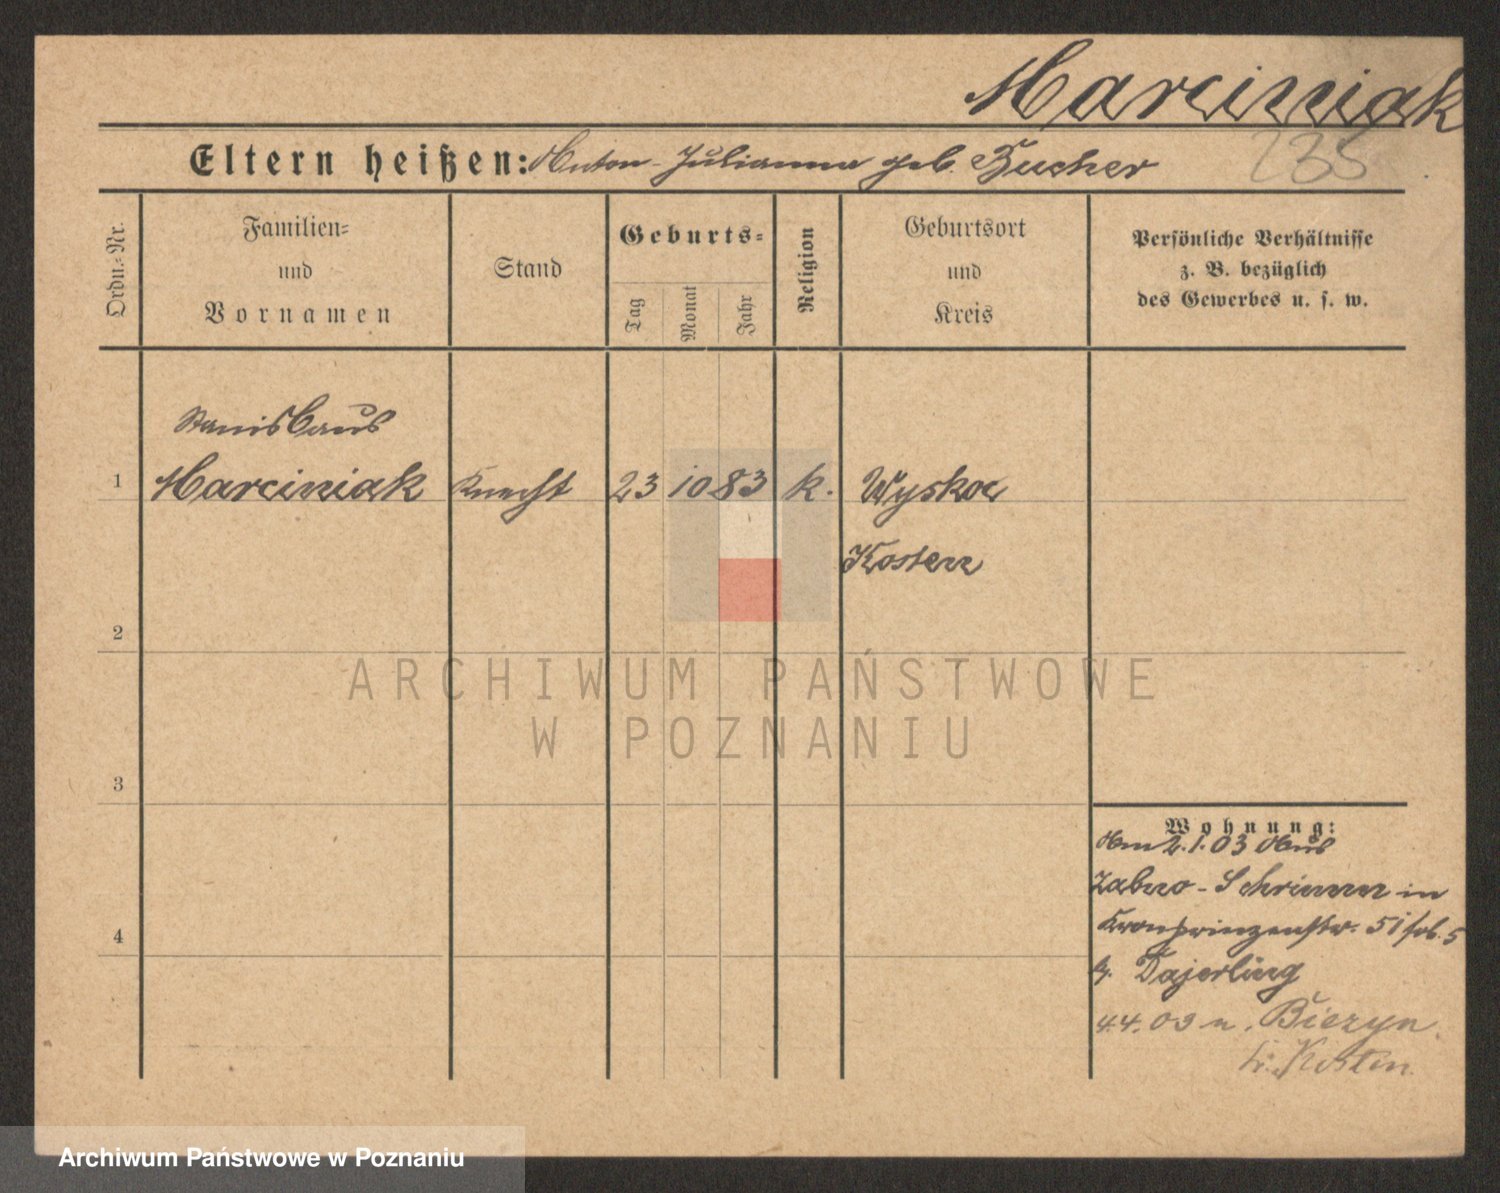 Marciniak
Eltern heißen: Anton - Julianna geb. Zucher
235
Ordn.-Nr.
Familien-
und
Vornamen
Stand
Geburts-
Tag
Monat
Jahr
Religion
Geburtsort
und
Kreis
Persönliche Verhältnisse
z. B. bezüglich
des Gewerbes u. s. w.
Stanislaus
1 Marciniak Knecht 23 10 83 k. Wyskoc
Kosten
2
ARCHIWUM PAŃSTWOWE
W POZNANIU
3
Wohnung:
Am 2.1.03 Aus
Zabno - Schrimm in
Kronprinzenstr. 51
b. Dajerling
4
4.4.03 n. Bieżyn
Kr. Kosten.
Archiwum Państwowe w Poznaniu